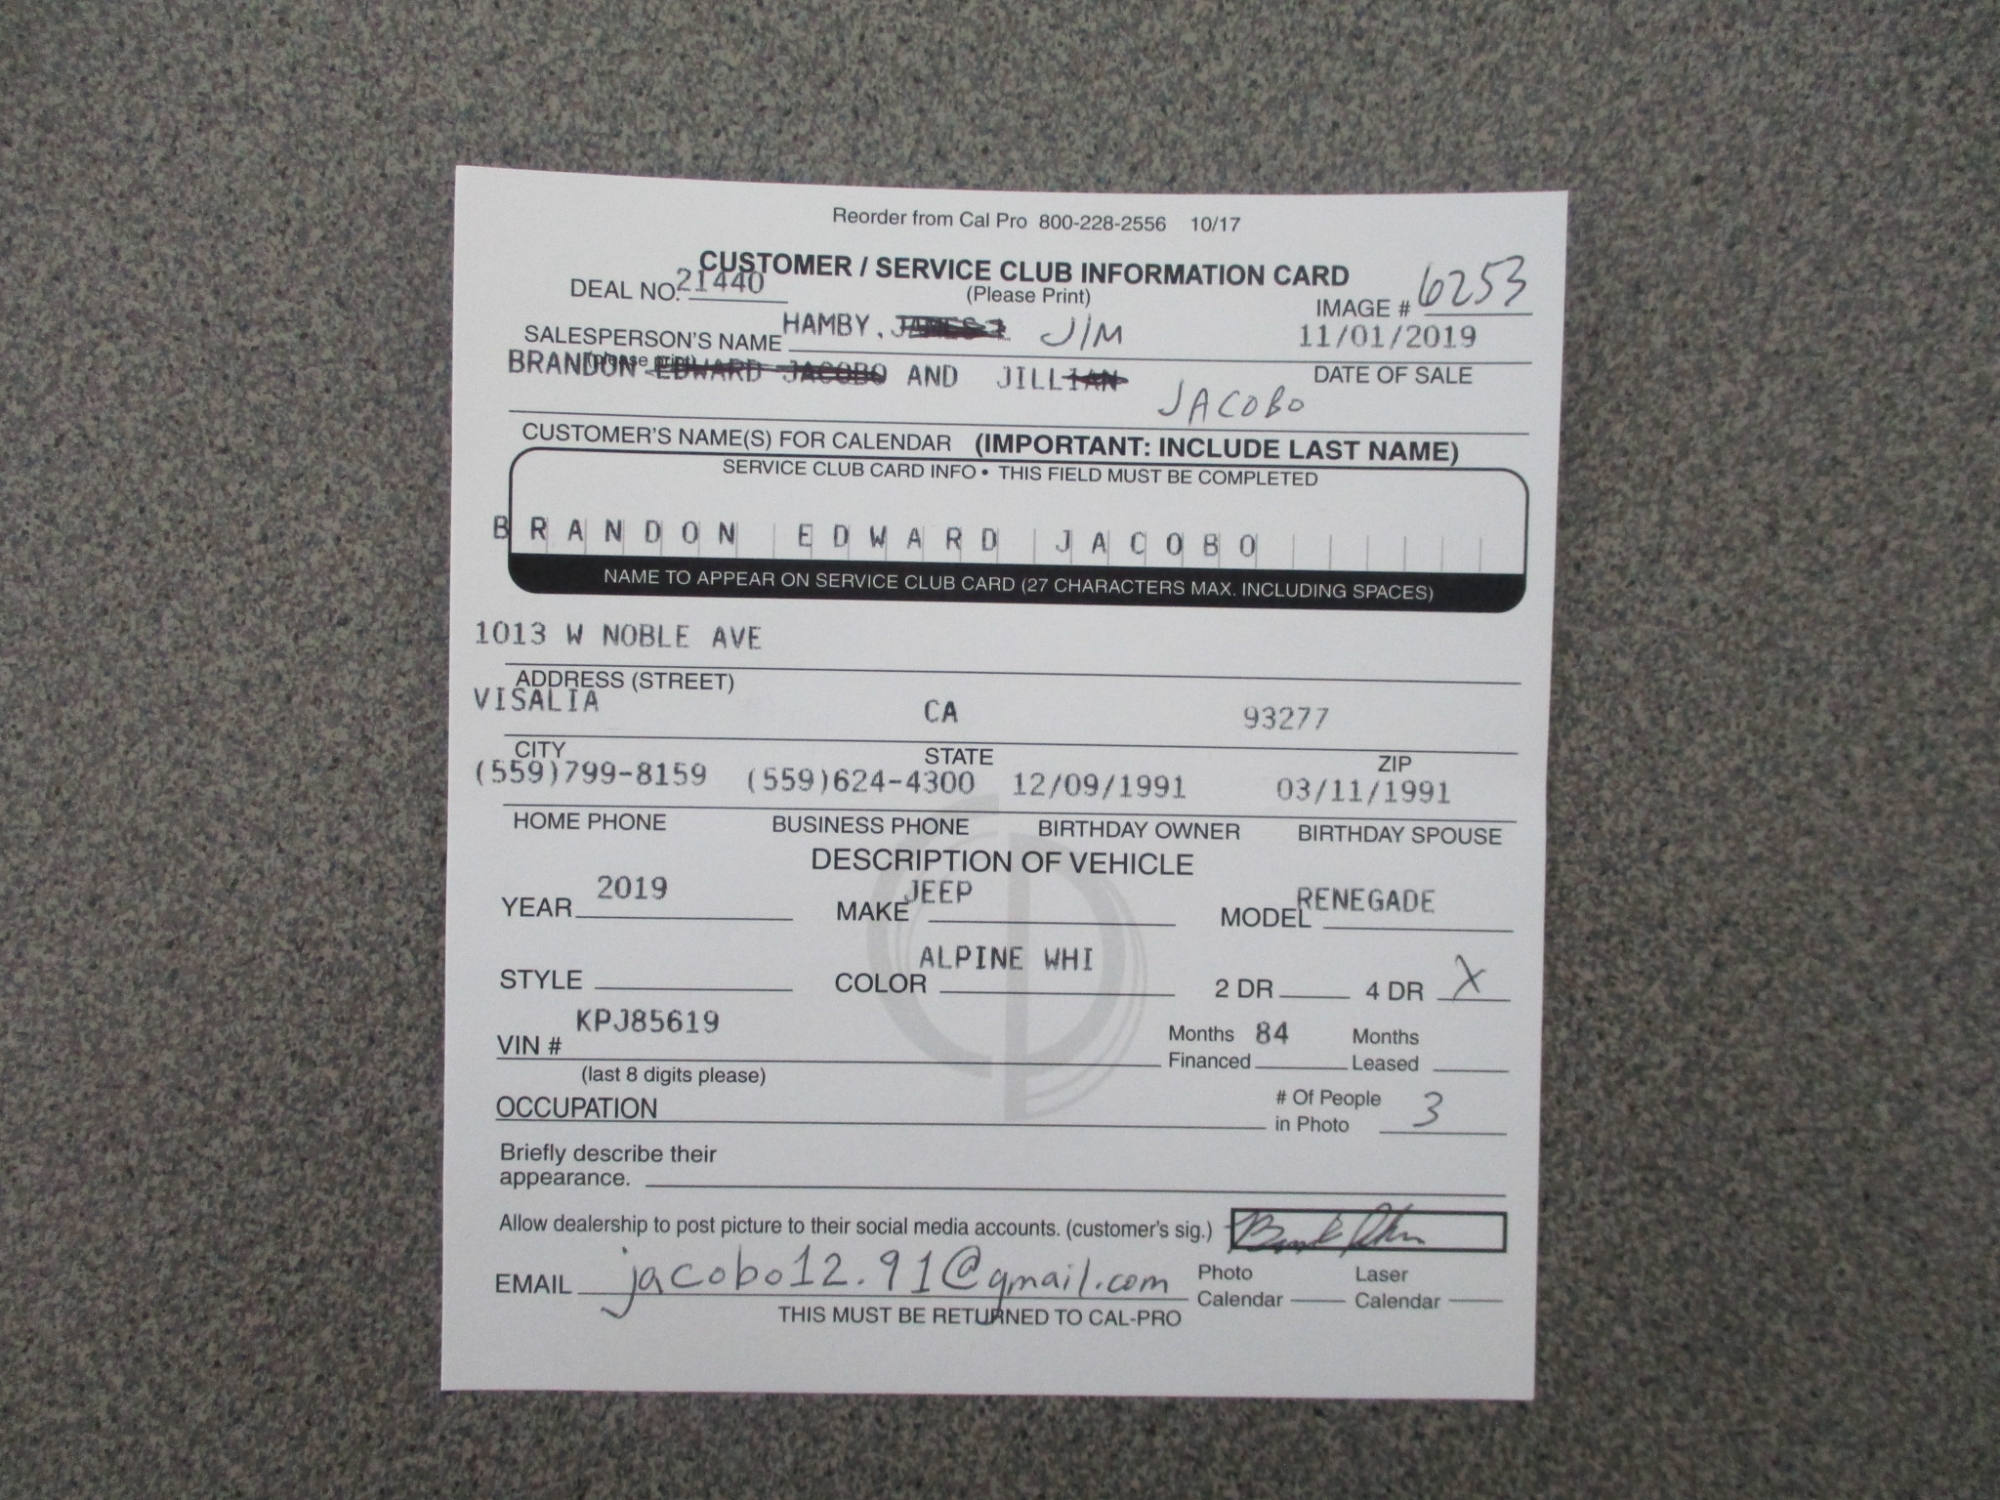 Reorder from Cal Pro 800-228-2556 10/17
CUSTOMER / SERVICE CLUB INFORMATION CARD
(Please Print)
DEAL NO. 21440
IMAGE # 6253
SALESPERSON'S NAME HAMBY, JIM
(please print)
11/01/2019
DATE OF SALE
BRANDON EDWARD JACOBO AND JILLIAN JACOBO
CUSTOMER'S NAME(S) FOR CALENDAR (IMPORTANT: INCLUDE LAST NAME)
SERVICE CLUB CARD INFO • THIS FIELD MUST BE COMPLETED
BRANDON EDWARD JACOBO
NAME TO APPEAR ON SERVICE CLUB CARD (27 CHARACTERS MAX. INCLUDING SPACES)
1013 W NOBLE AVE
ADDRESS (STREET)
VISALIA CA 93277
CITY STATE ZIP
(559)799-8159 (559)624-4300 12/09/1991 03/11/1991
HOME PHONE BUSINESS PHONE BIRTHDAY OWNER BIRTHDAY SPOUSE
DESCRIPTION OF VEHICLE
YEAR 2019 MAKE JEEP MODEL RENEGADE
STYLE COLOR ALPINE WHI 2 DR 4 DR X
VIN # KPJ85619
(last 8 digits please)
Months Financed 84 Months Leased
OCCUPATION
# Of People in Photo 3
Briefly describe their
appearance.
Allow dealership to post picture to their social media accounts. (customer's sig.)
EMAIL jacobo12.91@gmail.com
Photo Calendar Laser Calendar
THIS MUST BE RETURNED TO CAL-PRO